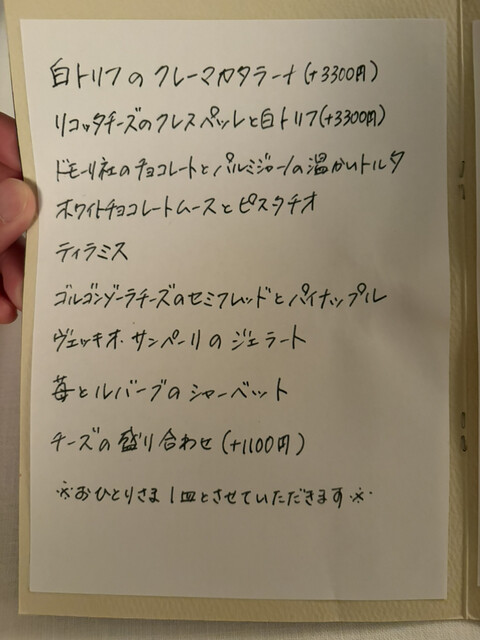 白トリフの クレーマカタラーナ (+3300円)
リコッタチーズのクレスペッレと白トリフ(+3300円)
ドモーリ社のチョコレートとパルミジャーノの温かいトルタ
ホワイトチョコレートムースとピスタチオ
ティラミス
ゴルゴンゾーラチーズのセミフレッドとパイナップル
ヴェッキオ・サンペーリの ジェラート
苺とルバーブのシャーベット
チーズの盛り合わせ (+1100円)
※おひとりさま1皿とさせていただきます※